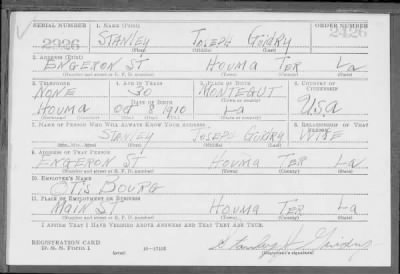 SERIAL NUMBER 1. NAME (Print) ORDER NUMBER
2926 STANLEY JOSEPH GUIDRY 2426
(First) (Middle) (Last)
2. ADDRESS (Print)
ENGERON ST HOUMA TER La
(Number and street or R. F. D. number) (Town) (County) (State)
3. TELEPHONE 4. AGE IN YEARS 5. PLACE OF BIRTH 6. COUNTRY OF CITIZENSHIP
NONE 30 MONTEGUT
DATE OF BIRTH (Town or county)
HOUMA OCT 8 1910 La USa
(Exchange) (Number) (Mo.) (Day) (Yr.) (State or country)
7. NAME OF PERSON WHO WILL ALWAYS KNOW YOUR ADDRESS 8. RELATIONSHIP OF THAT PERSON
STANLEY JOSEPH GUIDRY WIFE
(Mr., Mrs., Miss) (First) (Middle) (Last)
9. ADDRESS OF THAT PERSON
ENGERON ST HOUMA TER La
(Number and street or R. F. D. number) (Town) (County) (State)
10. EMPLOYER'S NAME
OTIS BOURG
11. PLACE OF EMPLOYMENT OR BUSINESS
MAIN ST HOUMA TER La
(Number and street or R. F. D. number) (Town) (County) (State)
I AFFIRM THAT I HAVE VERIFIED ABOVE ANSWERS AND THAT THEY ARE TRUE.
REGISTRATION CARD
D. S. S. Form 1 (over) 16—17105 Stanley J Guidry
(Registrant's signature)